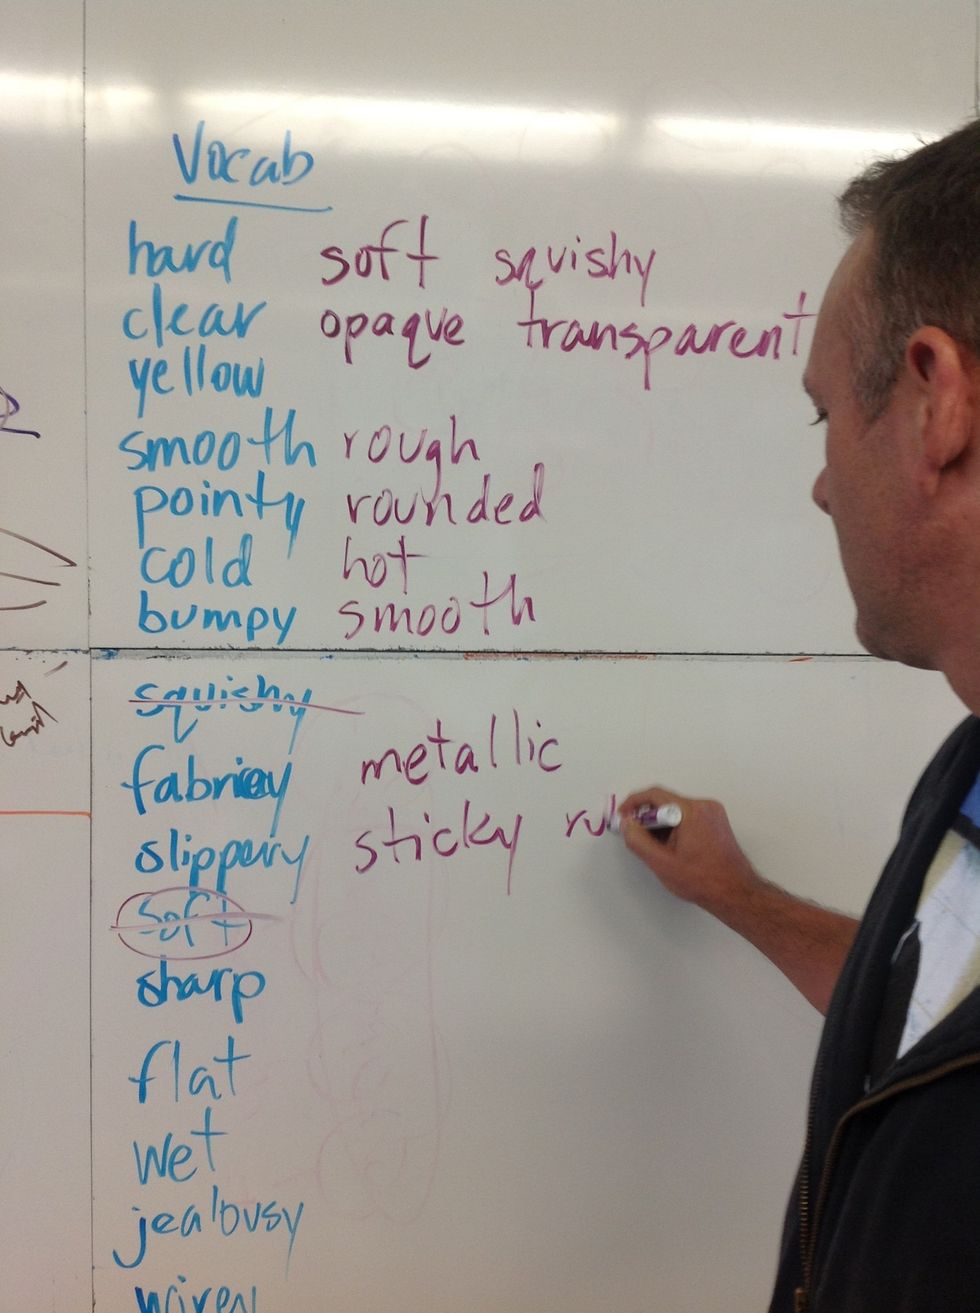 Vocab
hard soft squishy
clear opaque transparent
yellow
smooth rough
pointy rounded
cold hot
bumpy smooth
squishy
metallic
slippery sticky
soft
sharp
flat
wet
jealousy